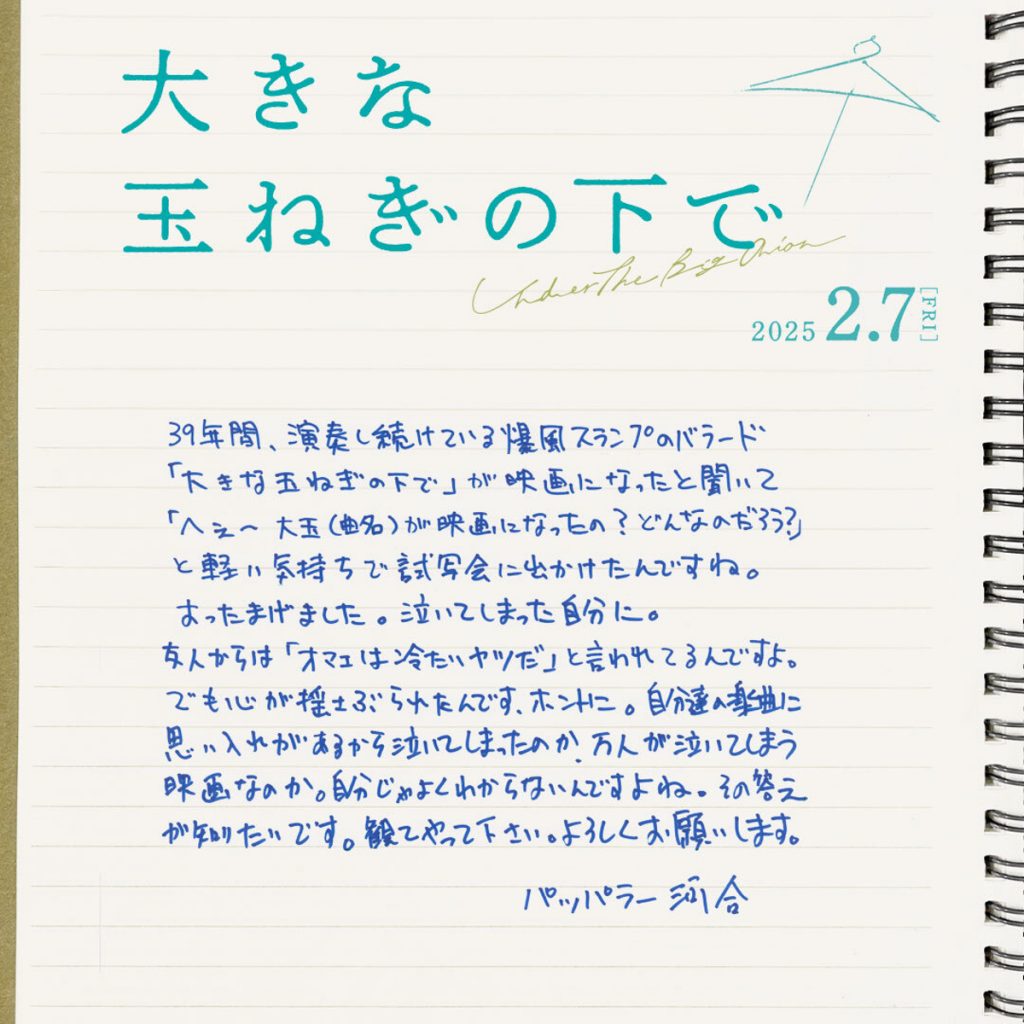 大きな
玉ねぎの下で
Under The Big Onion
2025 2.7 [FRI]
39年間、演奏し続けている爆風スランプのバラード
「大きな玉ねぎの下で」が映画になったと聞いて
「へぇ〜 大玉(曲名)が映画になったの？どんなのだろう？」
と軽い気持ちで試写会に出かけたんですね。
おったまげました。泣いてしまった自分に。
友人からは「オマエは冷たいヤツだ」と言われてるんですよ。
でも心が揺さぶられたんです、ホントに。自分達の楽曲に
思い入れがあるから泣いてしまったのか、万人が泣いてしまう
映画なのか。自分じゃよくわからないんですよね。その答え
が知りたいです。観てやって下さい。よろしくお願いします。
パッパラー河合